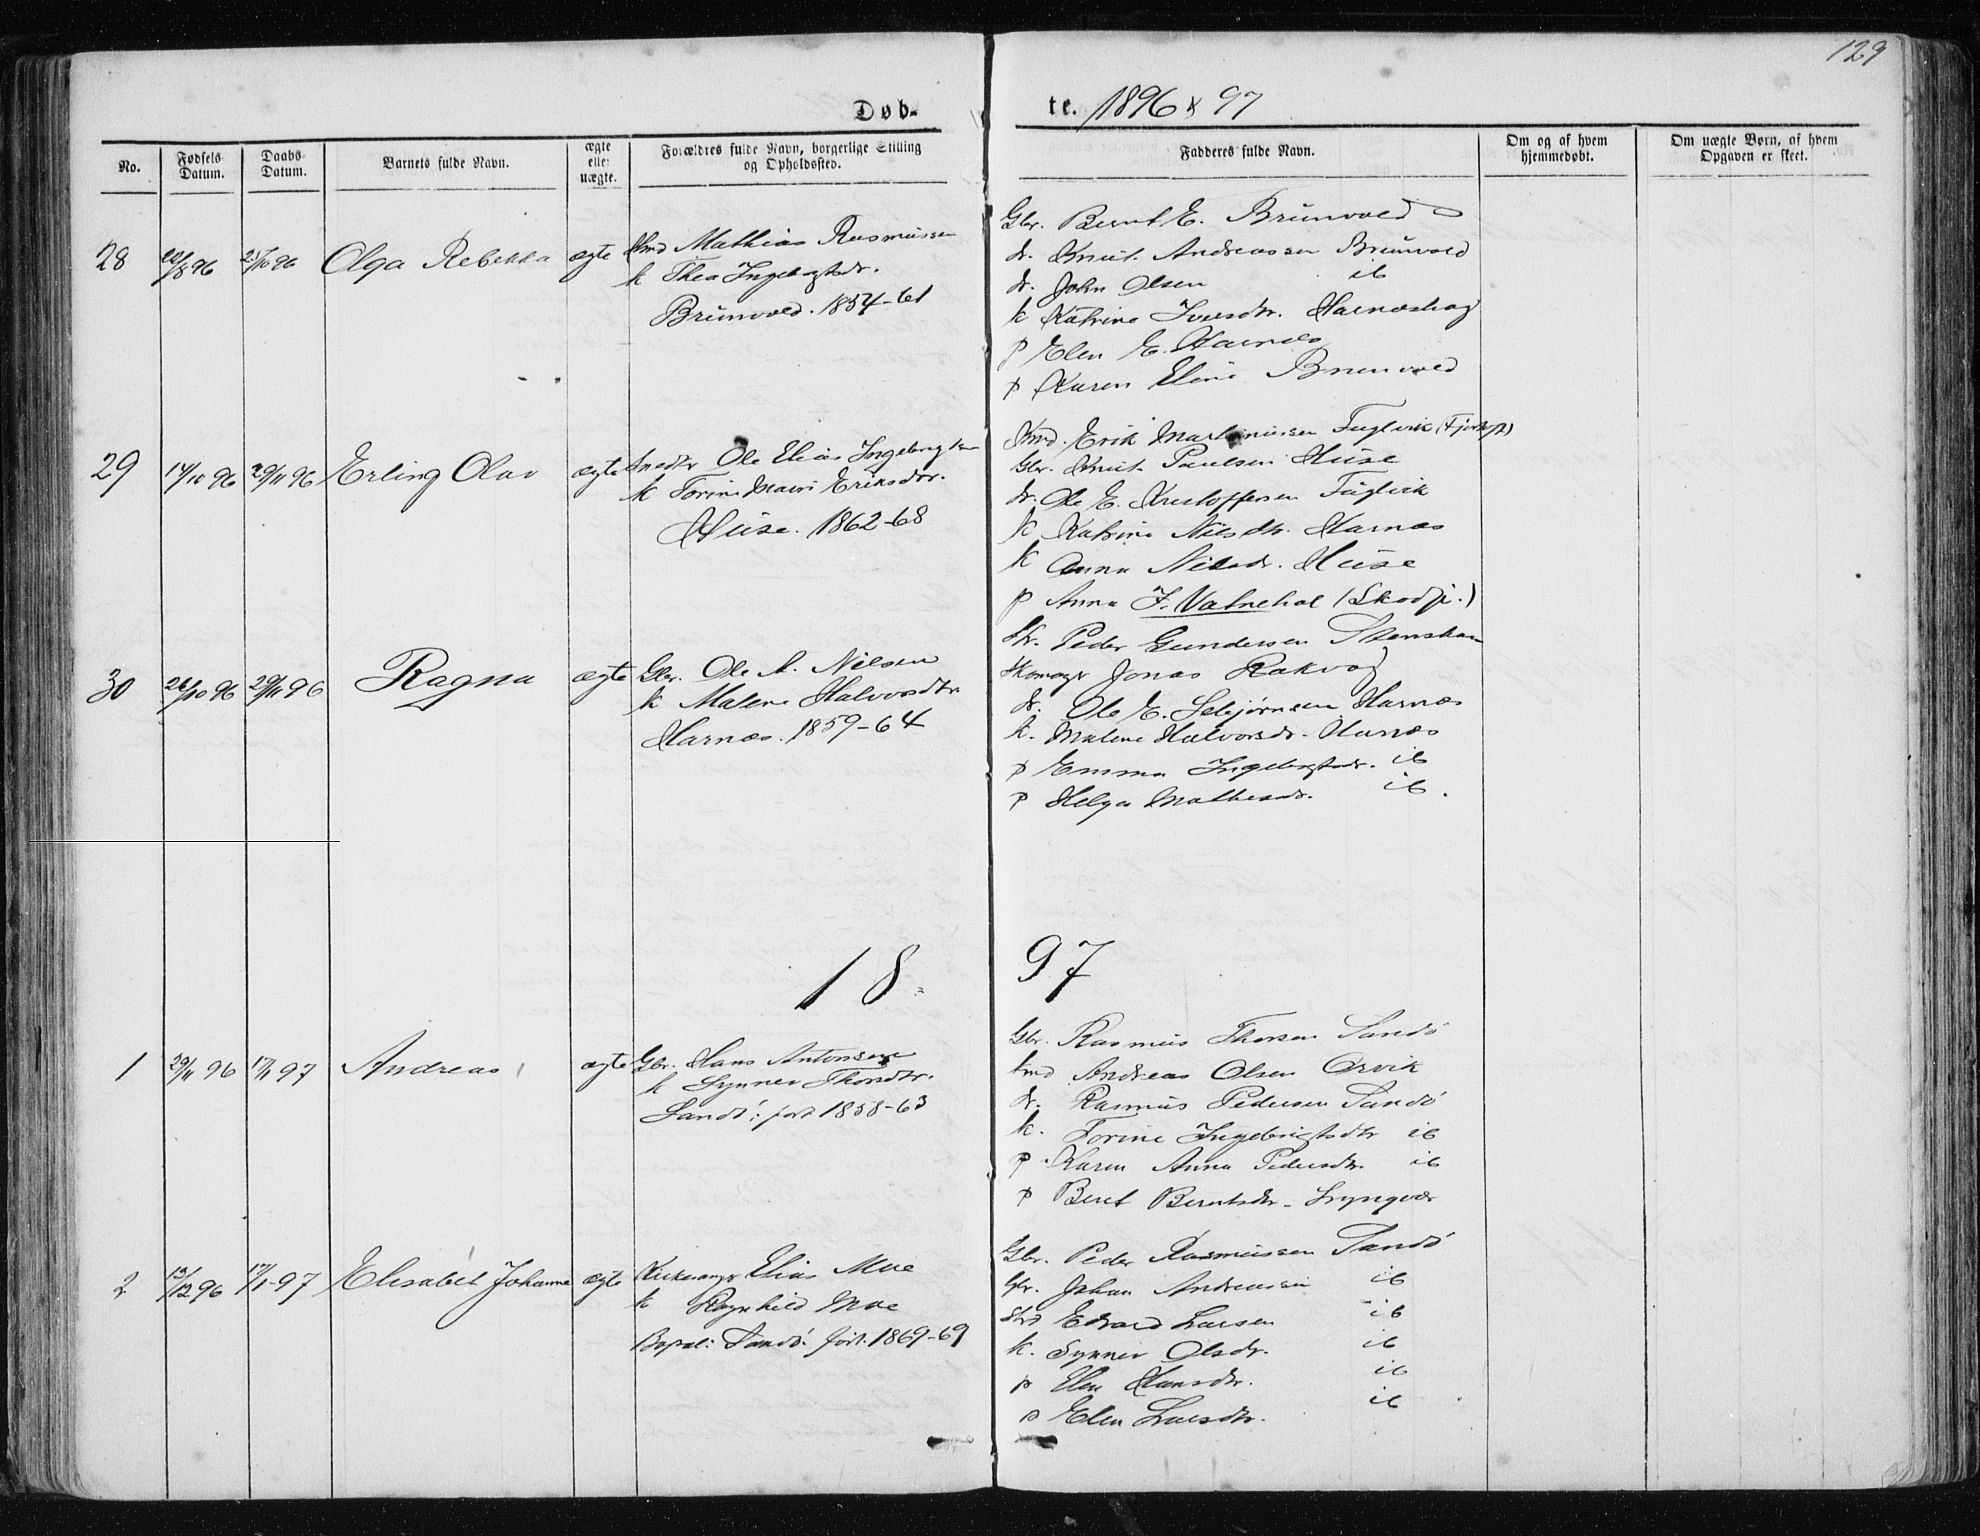 129
Døb- te. 1896 & 97
No.
Fødsels Datum.
Daabs Datum.
Barnets fulde Navn.
ægte eller uægte.
Forældres fulde Navn, borgerlige Stilling og Opholdssted.
Fadderes fulde Navn.
Om og af hvem hjemmedøbt.
Om uægte Børn, af hvem Opgaven er skeet.
28 /8 96 25/10 96 Olga Rebekka ægte
Mathias Rasmussen
k Thea Ingebrgtsdr.
Brunvold. 1854-61
Gbr. Bernt E. Brunvold
dr. Knut Andreassen Brunvold
dr. John Olsen ib
k Katrine Iversdtr. Harnæshag
p Elen E. Harnes
p Karen Eline Brunvold
29 14/10 96 29/11 96 Erling Olav ægte
Ole Elias Ingebrigtsen
k Torine Marie Eriksdtr.
Huse. 1862-68
Kmd. Erik Martinussen Fuglvik (Fjørtoft)
Gbr. Knut Paulsen Huse
dr. Ole E. Kristoffersen Fuglvik
k Katrine Nilsdtr. Harnæs
k Anna Nilsdr. Huse
p Anna J. Vatnehol (Skodje.)
30 26/10 96 29/11 96 Ragna ægte
Gbr. Ole A. Nilsen
k Malene Halvorsdtr
Harnæs. 1859-64
Peder Gundersen
Skomagr Jonas Rakvåg
dr. Ole E. Sebjørnsen Harnæs
k. Malene Halvorsdr. Harnæs
p Emma Ingebrgtsdr. ib
p Helga Mathiasdr. ib.
18 97
1 29/11 96 17/1 97 Andreas ægte
Gbr. Hans Antonsen
k Synnev Thorsdtr.
Sandø: født 1858-63
Gbr. Rasmus Thorsen Sandø
Andreas Olsen Orvik
dr. Rasmus Pedersen Sandø
k. Torine Ingebrigtsdtr ib
p Karen Anna Pedersdtr. ib
p Beret Berntsdtr - Lyngvær
2 13/12 96 17/1-97 Elisabet Johanne ægte
Kirkesangr Elias Moe
k Ragnhild Moe
Bopæl: Sandø. født. 1869-69
Gbr. Peder Rasmussen Sandø
Gbr. Johan Andreassen ib
Edvard Larsen ib
k. Synnev Olsdr. ib
p Elen Hansdtr. ib
p Elen Larsdtr. ib